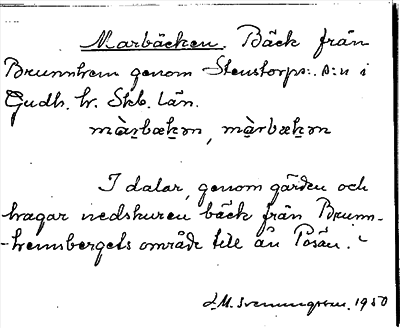 Marbäcken. Bäck från
Brunnhem genom Stenstorps. s:n i
Gudh. hr. Skb. län.
mà̱rbæḵən, mà̱rbæḵən
I dalar, genom gärden och
hagar nedskuren bäck från Brunn-
-hemsbergets område till ån Pösan.
1950